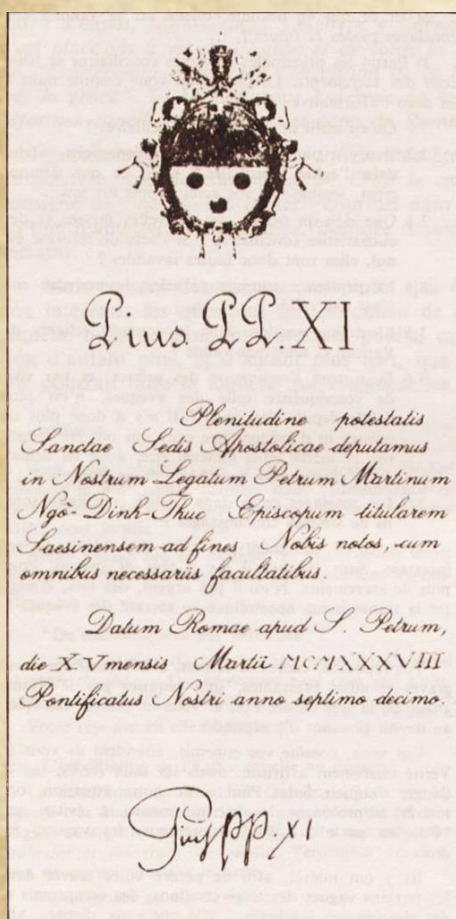 Pius. PP. XI
Plenitudine potestatis
Sanctae Sedis Apostolicae deputamus
in Nostrum Legatum Petrum Martinum
Ngô-Dinh-Thuc Episcopum titularem
Saesinensem ad fines Nobis notos, cum
omnibus necessariis facultatibus.
Datum Romae apud S. Petrum,
die XV mensis Martii MCMXXXVIII
Pontificatus Nostri anno septimo decimo.
Pius PP. XI